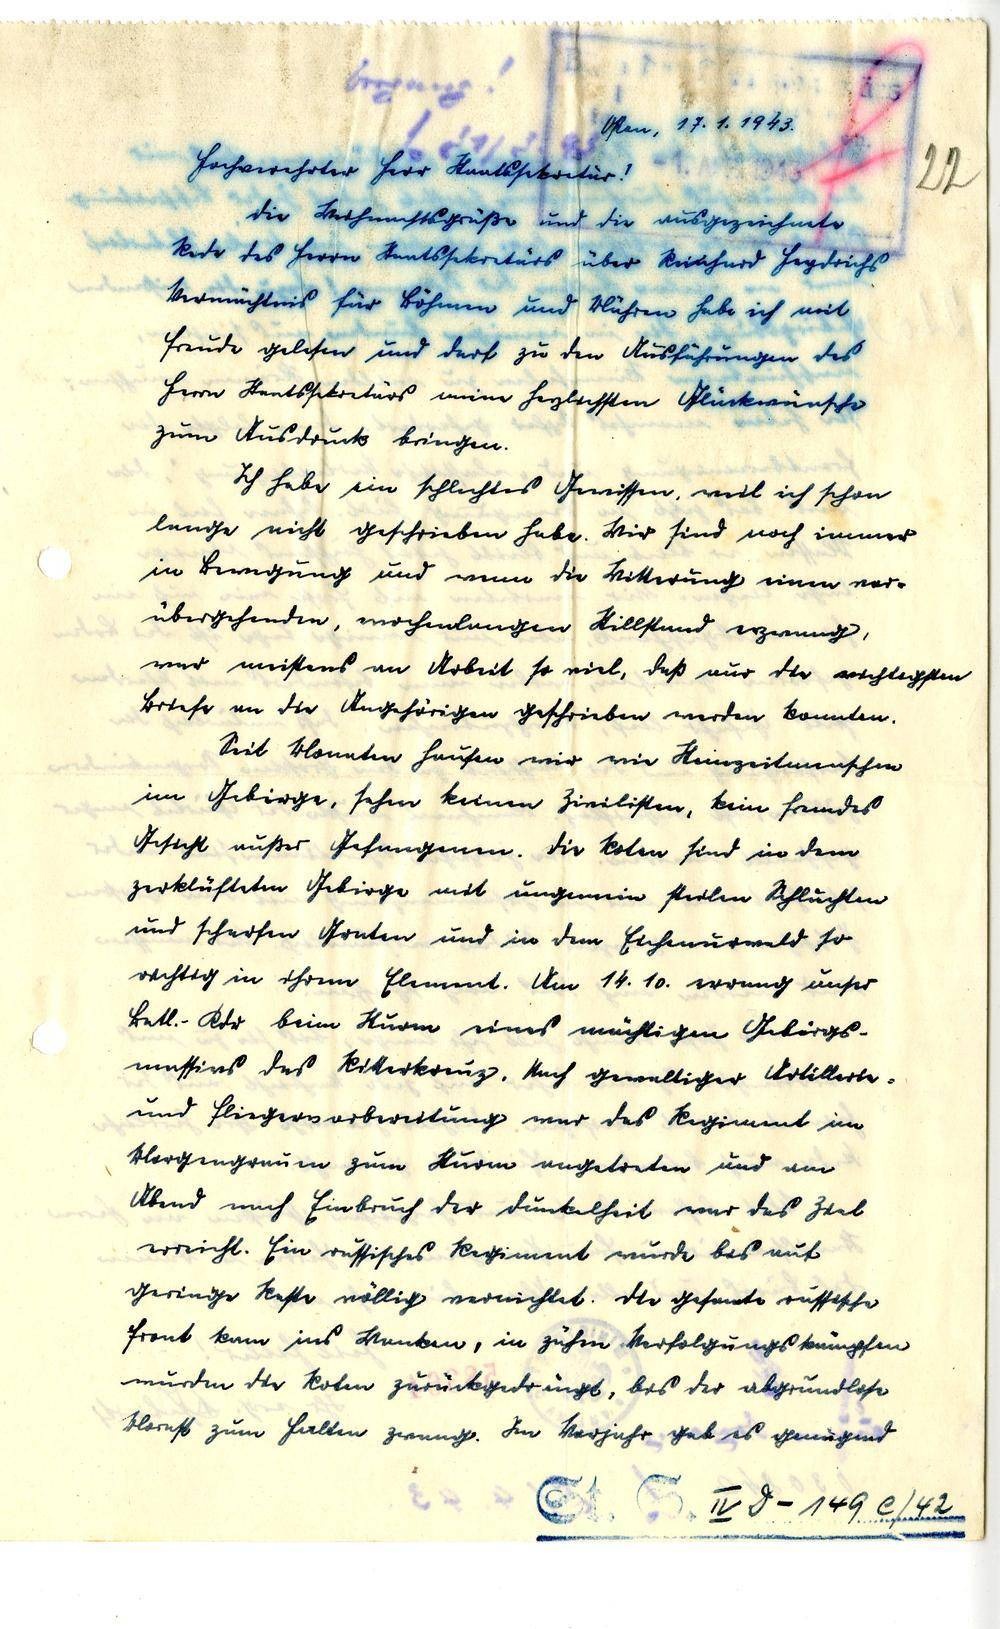 Osten, 17.1.1943.
22
Hochverehrter Herr Staatssekretär!
Die Weihnachtsgrüße und die ausgezeichnete
Rede des Herrn Staatssekretärs über Reinhard Heydrichs
Vermächtnis für Böhmen und Mähren habe ich mit
Freude gelesen und darf zu den Ausführungen des
Herrn Staatssekretärs meine herzlichsten Glückwünsche
zum Ausdruck bringen.
Ich habe ein schlechtes Gewissen, weil ich schon
lange nicht geschrieben habe. Wir sind noch immer
in Bewegung und wenn die Witterung einen vor-
übergehenden, wochenlangen Stillstand erzwang,
war meistens an Arbeit so viel, daß nur die wichtigsten
Briefe an die Angehörigen geschrieben werden konnten.
Seit Monaten hausen wir wie Steinzeitmenschen
im Gebirge, sehen keinen Zivilisten, kein fremdes
Gesicht außer Gefangenen. Die Roten sind in dem
zerklüfteten Gebirge mit ungemein steilen Schluchten
und scharfen Graten und in dem Eichenurwald so
richtig in ihrem Element. Am 14.10. errang unser
Batl.-Kdr beim Sturm eines mächtigen Gebirgs-
massivs das Ritterkreuz. Nach gewaltiger Artillerie-
und Fliegervorbereitung war das Regiment im
Morgengrauen zum Sturm angetreten und am
Abend nach Einbruch der Dunkelheit war das Ziel
erreicht. Ein russisches Regiment wurde bis auf
geringe Reste völlig vernichtet. Die gesamte russische
Front kam ins Wanken, in zähen Verfolgungskämpfen
wurden die Roten zurückgedrängt, bis der abgrundlose
Morast zum Halten zwang. Im Vorjahr gab es genügend
St. S. IV D - 149 e/42